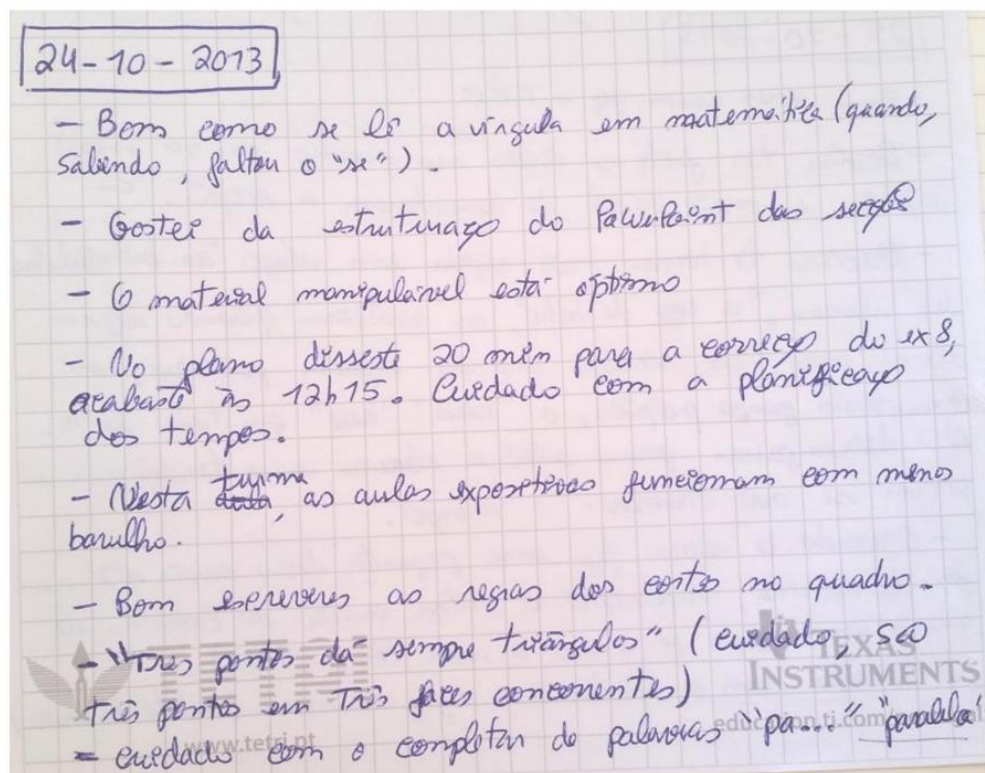 24-10-2013
- Bom como se lê a vírgula em matemática (quando,
sabendo, faltou o "se").
- Gostei da estruturaço do PowerPoint das secções
- O material manipulável está óptimo
- No plano disseste 20 min para a correcço do ex 8,
acabaste às 12h15. Cuidado com a planificaço
dos tempos.
- Nesta turma, as aulas expositivas funcionam com menos
barulho.
- Bom escreveres as regras dos cortes no quadro.
- "Três pontos dá sempre triângulos" (cuidado, são
três pontos em três faces concorrentes)
- cuidado com o completar de palavras "pa..." "paralela"
TEXAS
INSTRUMENTS
education.ti.com
www.tetri.pt